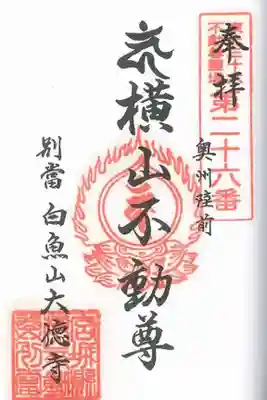 奉拝
奥州陸前
横山不動尊
別當 白魚山大徳寺
第二十六番